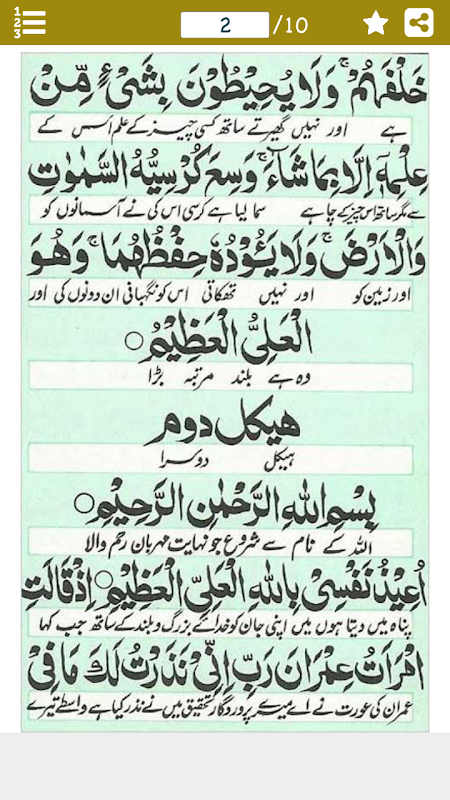 1
2
3
2 /10
خَلْفَهُمْ ۚ وَلَا يُحِيْطُوْنَ بِشَیْءٍ مِّنْ
ہے اور نہیں گھیرتے ساتھ کسی چیز کے علم اس کے
عِلْمِهٖٓ اِلَّا بِمَا شَآءَ ۚ وَسِعَ كُرْسِيُّهُ السَّمٰوٰتِ
سے مگر ساتھ اس چیز کے چاہے سما لیا ہے کرسی اس کی نے آسمانوں کو
وَالْاَرْضَ ۚ وَلَا يَـُٔوْدُهٗ حِفْظُهُمَا ۚ وَهُوَ
اور زمین کو اور نہیں تھکاتی اس کو نگہبانی ان دونوں کی اور
الْعَلِیُّ الْعَظِيْمُ ○
وہ ہے بلند مرتبہ بڑا
هیکل دوم
ہیکل دوسرا
بِسْمِ اللهِ الرَّحْمٰنِ الرَّحِيْمِ ○
اللہ کے نام سے شروع جو نہایت مہربان رحم والا
اُعِيْذُ نَفْسِیْ بِاللهِ الْعَلِیِّ الْعَظِيْمِ ○ اِذْ قَالَتِ
پناہ میں دیتا ہوں میں اپنی جان کو خدائے بزرگ و بلند کے ساتھ جب کہا
امْرَاَتُ عِمْرَانَ رَبِّ اِنِّیْ نَذَرْتُ لَكَ مَا فِیْ
عمران کی عورت نے اے میرے پروردگار تحقیق میں نے نذر کیا ہے واسطے تیرے